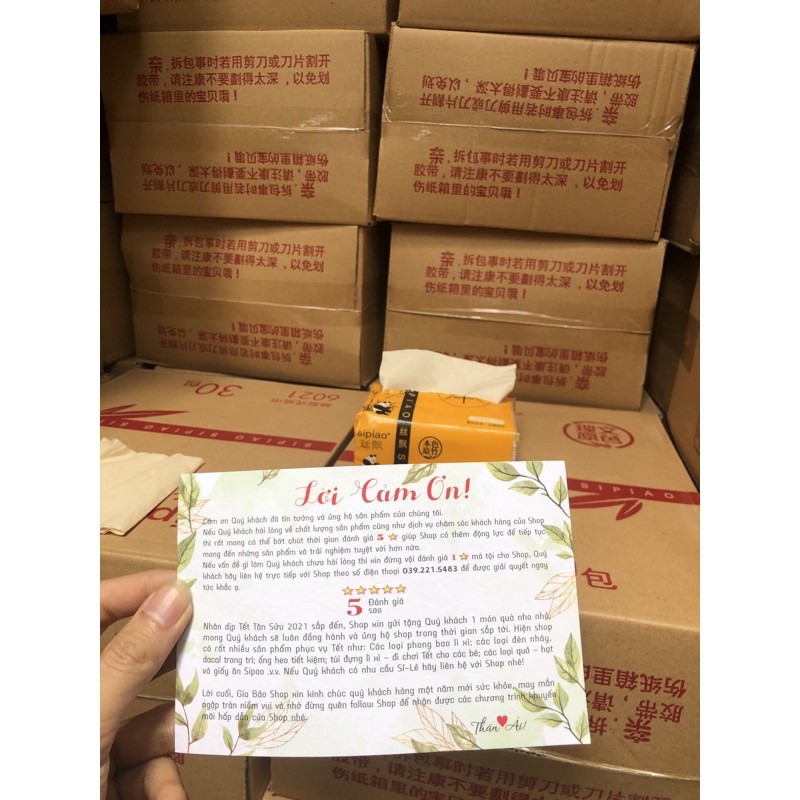 亲，拆包事时若用剪刀或刀片割开
胶带，请注康不要劃得太深，以免划
伤纸箱里的宝贝哦！
亲，拆包事时若用剪刀或刀片割开
胶带，请注康不要劃得太深，以免划
伤纸箱里的宝贝哦！
亲，拆包事时若用剪刀或刀片割开
胶带，请注康不要劃得太深，以免划
伤纸箱里的宝贝哦！
亲，拆包事时若用剪刀或刀片割开
胶带，请注康不要劃得太深，以免划
伤纸箱里的宝贝哦！
亲，拆包事时若用剪刀或刀片割开
胶带，请注康不要劃得太深，以免划
伤纸箱里的宝贝哦！
亲，拆包事时若用剪刀或刀片割开
胶带，请注康不要劃得太深，以免划
伤纸箱里的宝贝哦！
亲，拆包事时若用剪刀或刀片割开
胶带，请注康不要劃得太深，以免划
伤纸箱里的宝贝哦！
亲，拆包事时若用剪刀或刀片割开
胶带，请注康不要劃得太深，以免划
伤纸箱里的宝贝哦！
30包
6021
SIPIAO
SIPIAO 丝飘
sipiao
丝飘
本色
原竹
SIPIAO
包
Lời Cảm Ơn!
Cảm ơn Quý khách đã tin tưởng và ủng hộ sản phẩm của chúng tôi.
Nếu Quý khách hài lòng về chất lượng sản phẩm cũng như dịch vụ chăm sóc khách hàng của Shop
thì rất mong có thể bớt chút thời gian đánh giá 5 ⭐ giúp Shop có thêm động lực để tiếp tục
mang đến những sản phẩm và trải nghiệm tuyệt vời hơn nữa.
Nếu vấn đề gì làm Quý khách chưa hài lòng thì xin đừng vội đánh giá 1 ⭐ mà tội cho Shop, Quý
khách hãy liên hệ trực tiếp với Shop theo số điện thoại 039.221.5483 để được giải quyết ngay
tức khắc ạ.
5 Đánh giá
sao
Nhân dịp Tết Tân Sửu 2021 sắp đến, Shop xin gửi tặng Quý khách 1 món quà nho nhỏ,
mong Quý khách sẽ luôn đồng hành và ủng hộ shop trong thời gian sắp tới. Hiện shop
có rất nhiều sản phẩm phục vụ Tết như: Các loại phong bao lì xì; các loại đèn nháy,
dacal trang trí; ống heo tiết kiệm; túi đựng lì xì – đi chơi Tết cho các bé; các loại quả – hạt
và giấy ăn Sipao .v.v. Nếu Quý khách có nhu cầu Sỉ-Lẻ hãy liên hệ với Shop nhé!
Lời cuối, Gia Bảo Shop xin kính chúc quý khách hàng một năm mới sức khỏe, may mắn
ngập tràn niềm vui và nhớ đừng quên follow Shop để nhận được các chương trình khuyến
mãi hấp dẫn của Shop nhé.
Thân Ái!
胶带，请注康不要劃得太深，以免划
伤纸箱里的宝贝哦！